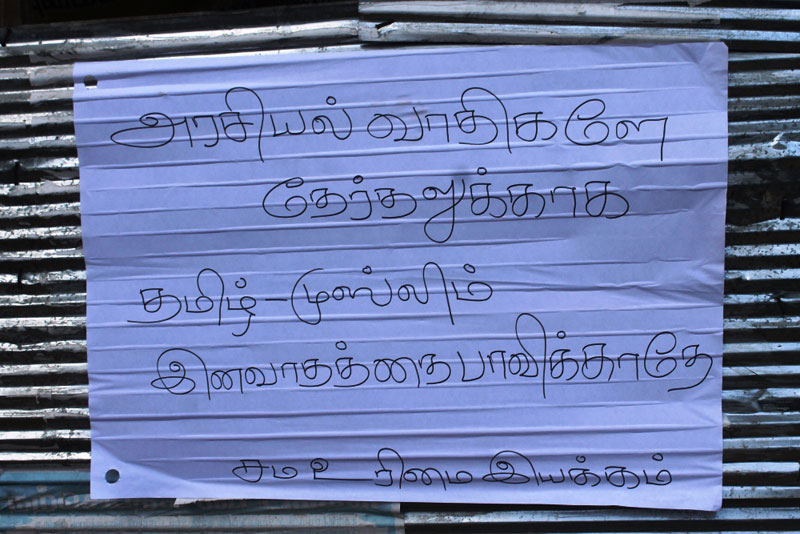 அரசியல் வாதிகளே
தேர்தலுக்காக
தமிழ் - முஸ்லிம்
இனவாதத்தை பாவிக்காதே
சம உ ரிமை இயக்கம்